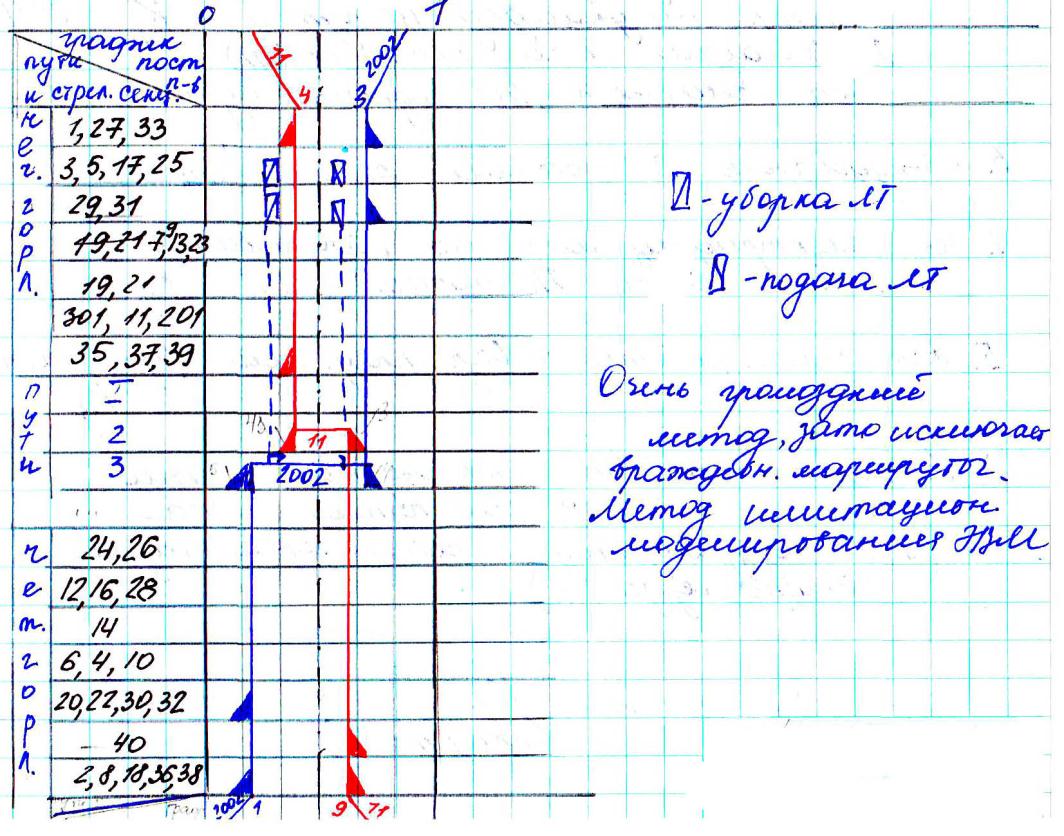 0 1
график
пути пост п-в
и стрел. секц.
71
2002
4 3
неч. горл.
1, 27, 33
3, 5, 17, 25
29, 31
19, 21 7, 9, 13, 23
19, 21
301, 11, 201
35, 37, 39
пути
I
2
11
3
2002
чет. горл.
24, 26
12, 16, 28
14
6, 4, 10
20, 22, 30, 32
40
2, 8, 18, 36, 38
2002 1 9 71
- уборка ЛТ
- подача ЛТ
Очень громоздкий
метод, зато исключает
враждебн. маршруты.
Метод имитацион
моделирования ЭВМ